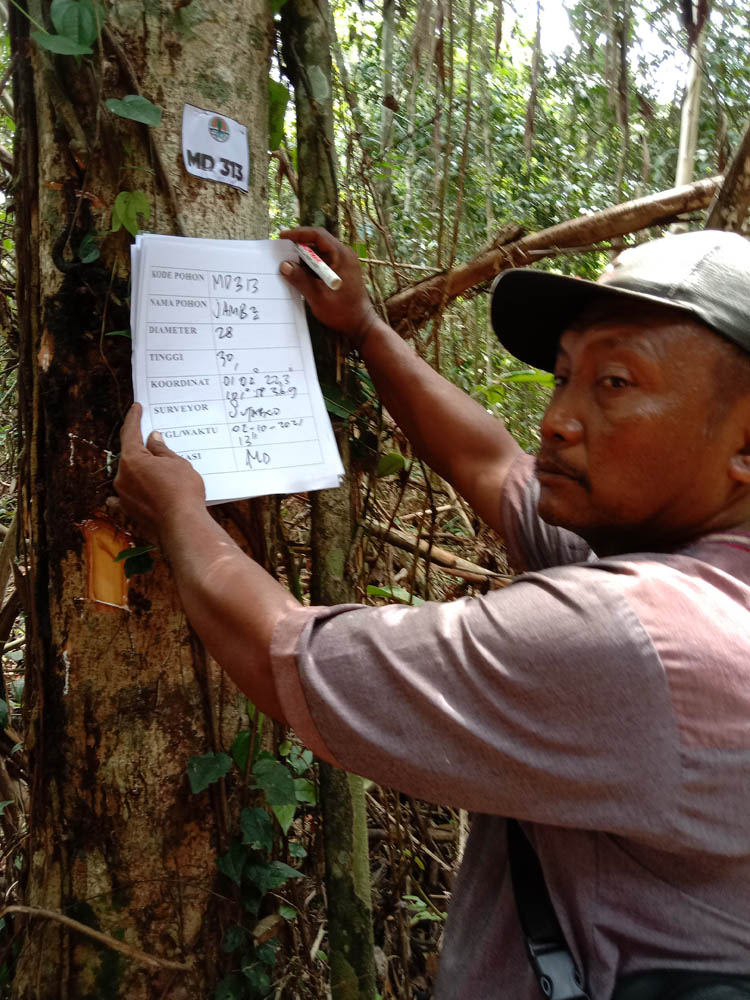 MD 313
KODE POHON MD313
NAMA POHON JAMBU
DIAMETER 28
TINGGI 30,
KOORDINAT 01° 02' 22,3
101° 18' 36.9
SURVEYOR
TGL/WAKTU 02-10-2021
13"
ASI MD